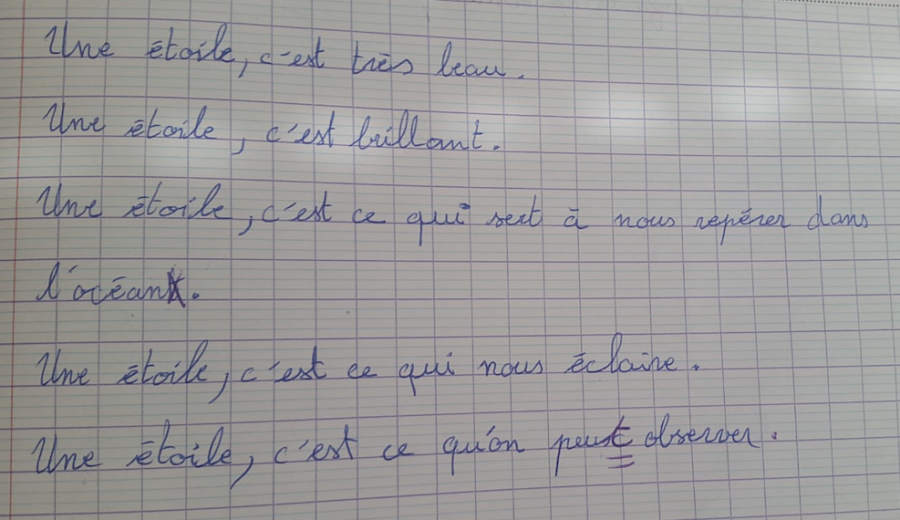 Une étoile, c'est très beau.
Une étoile, c'est brillant.
Une étoile, c'est ce qui sert à nous repérer dans
l'océan.
Une étoile, c'est ce qui nous éclaire.
Une étoile, c'est ce qu'on peut observer.